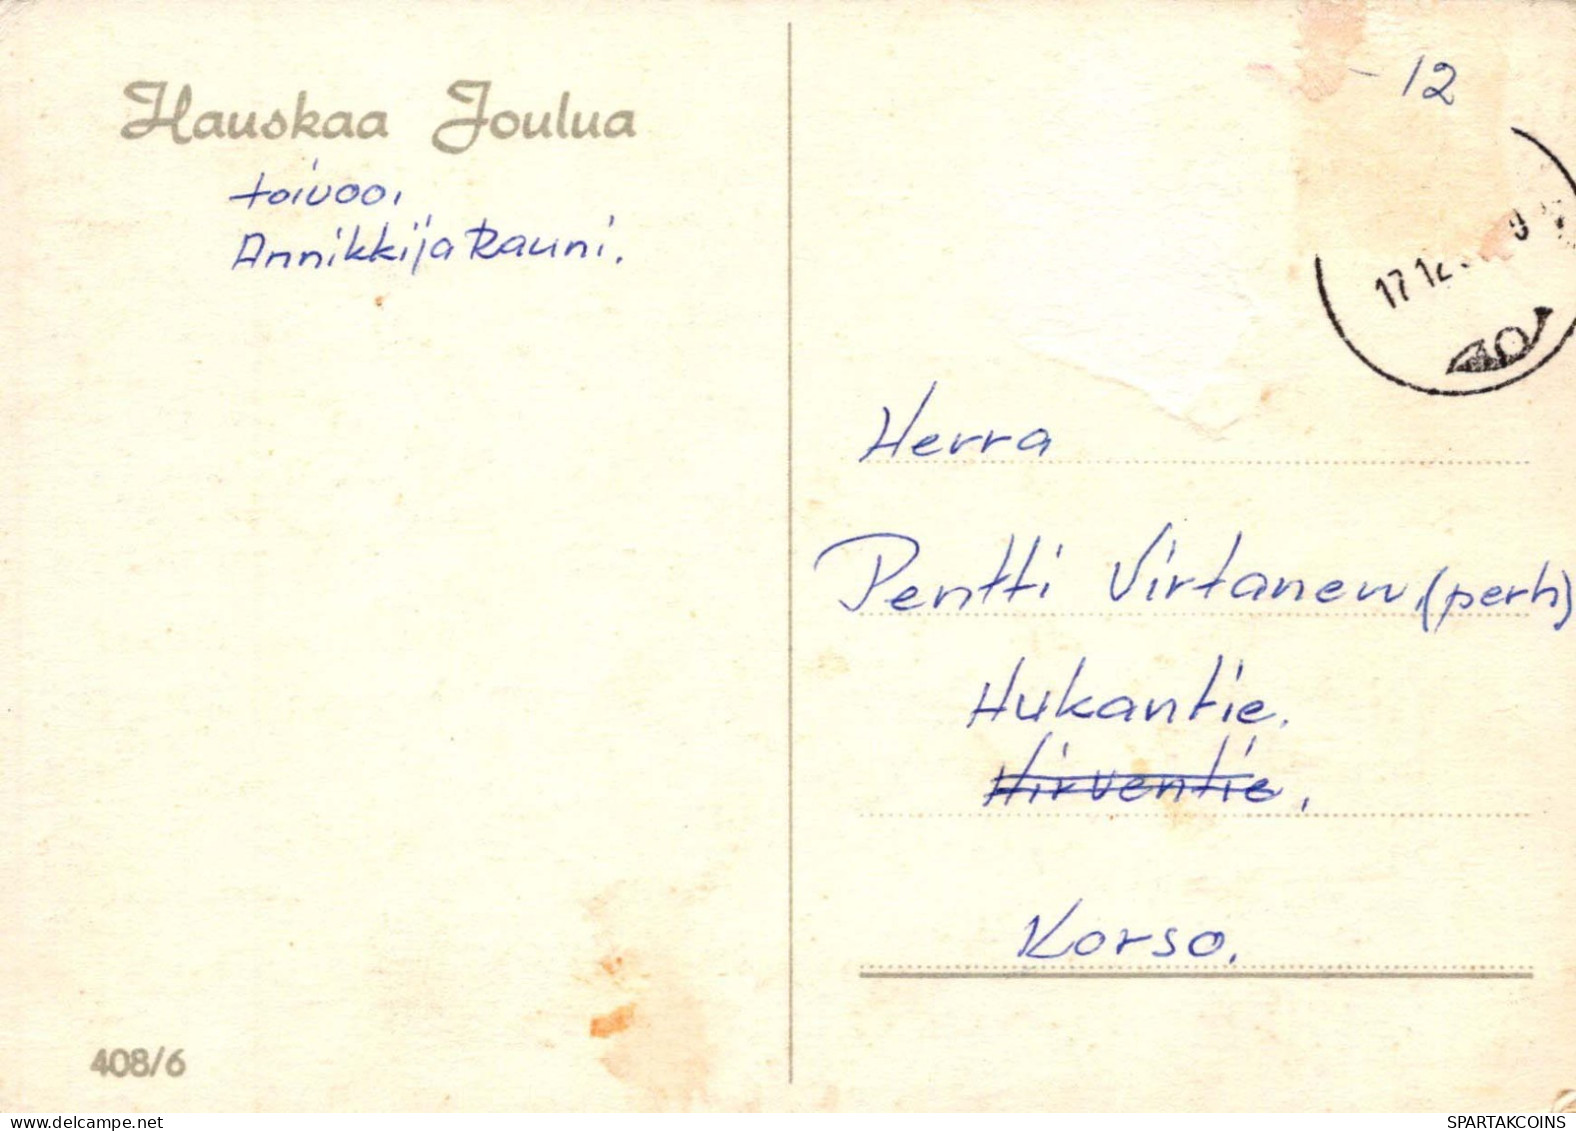 Hauskaa Joulua
toivoo,
Annikki ja Rauni.
408/6
-12
17 12
Herra
Pentti Virtanen, (perh)
Hukantie.
Hirventie,
Korso.
www.delcampe.net
SPARTAKCOINS